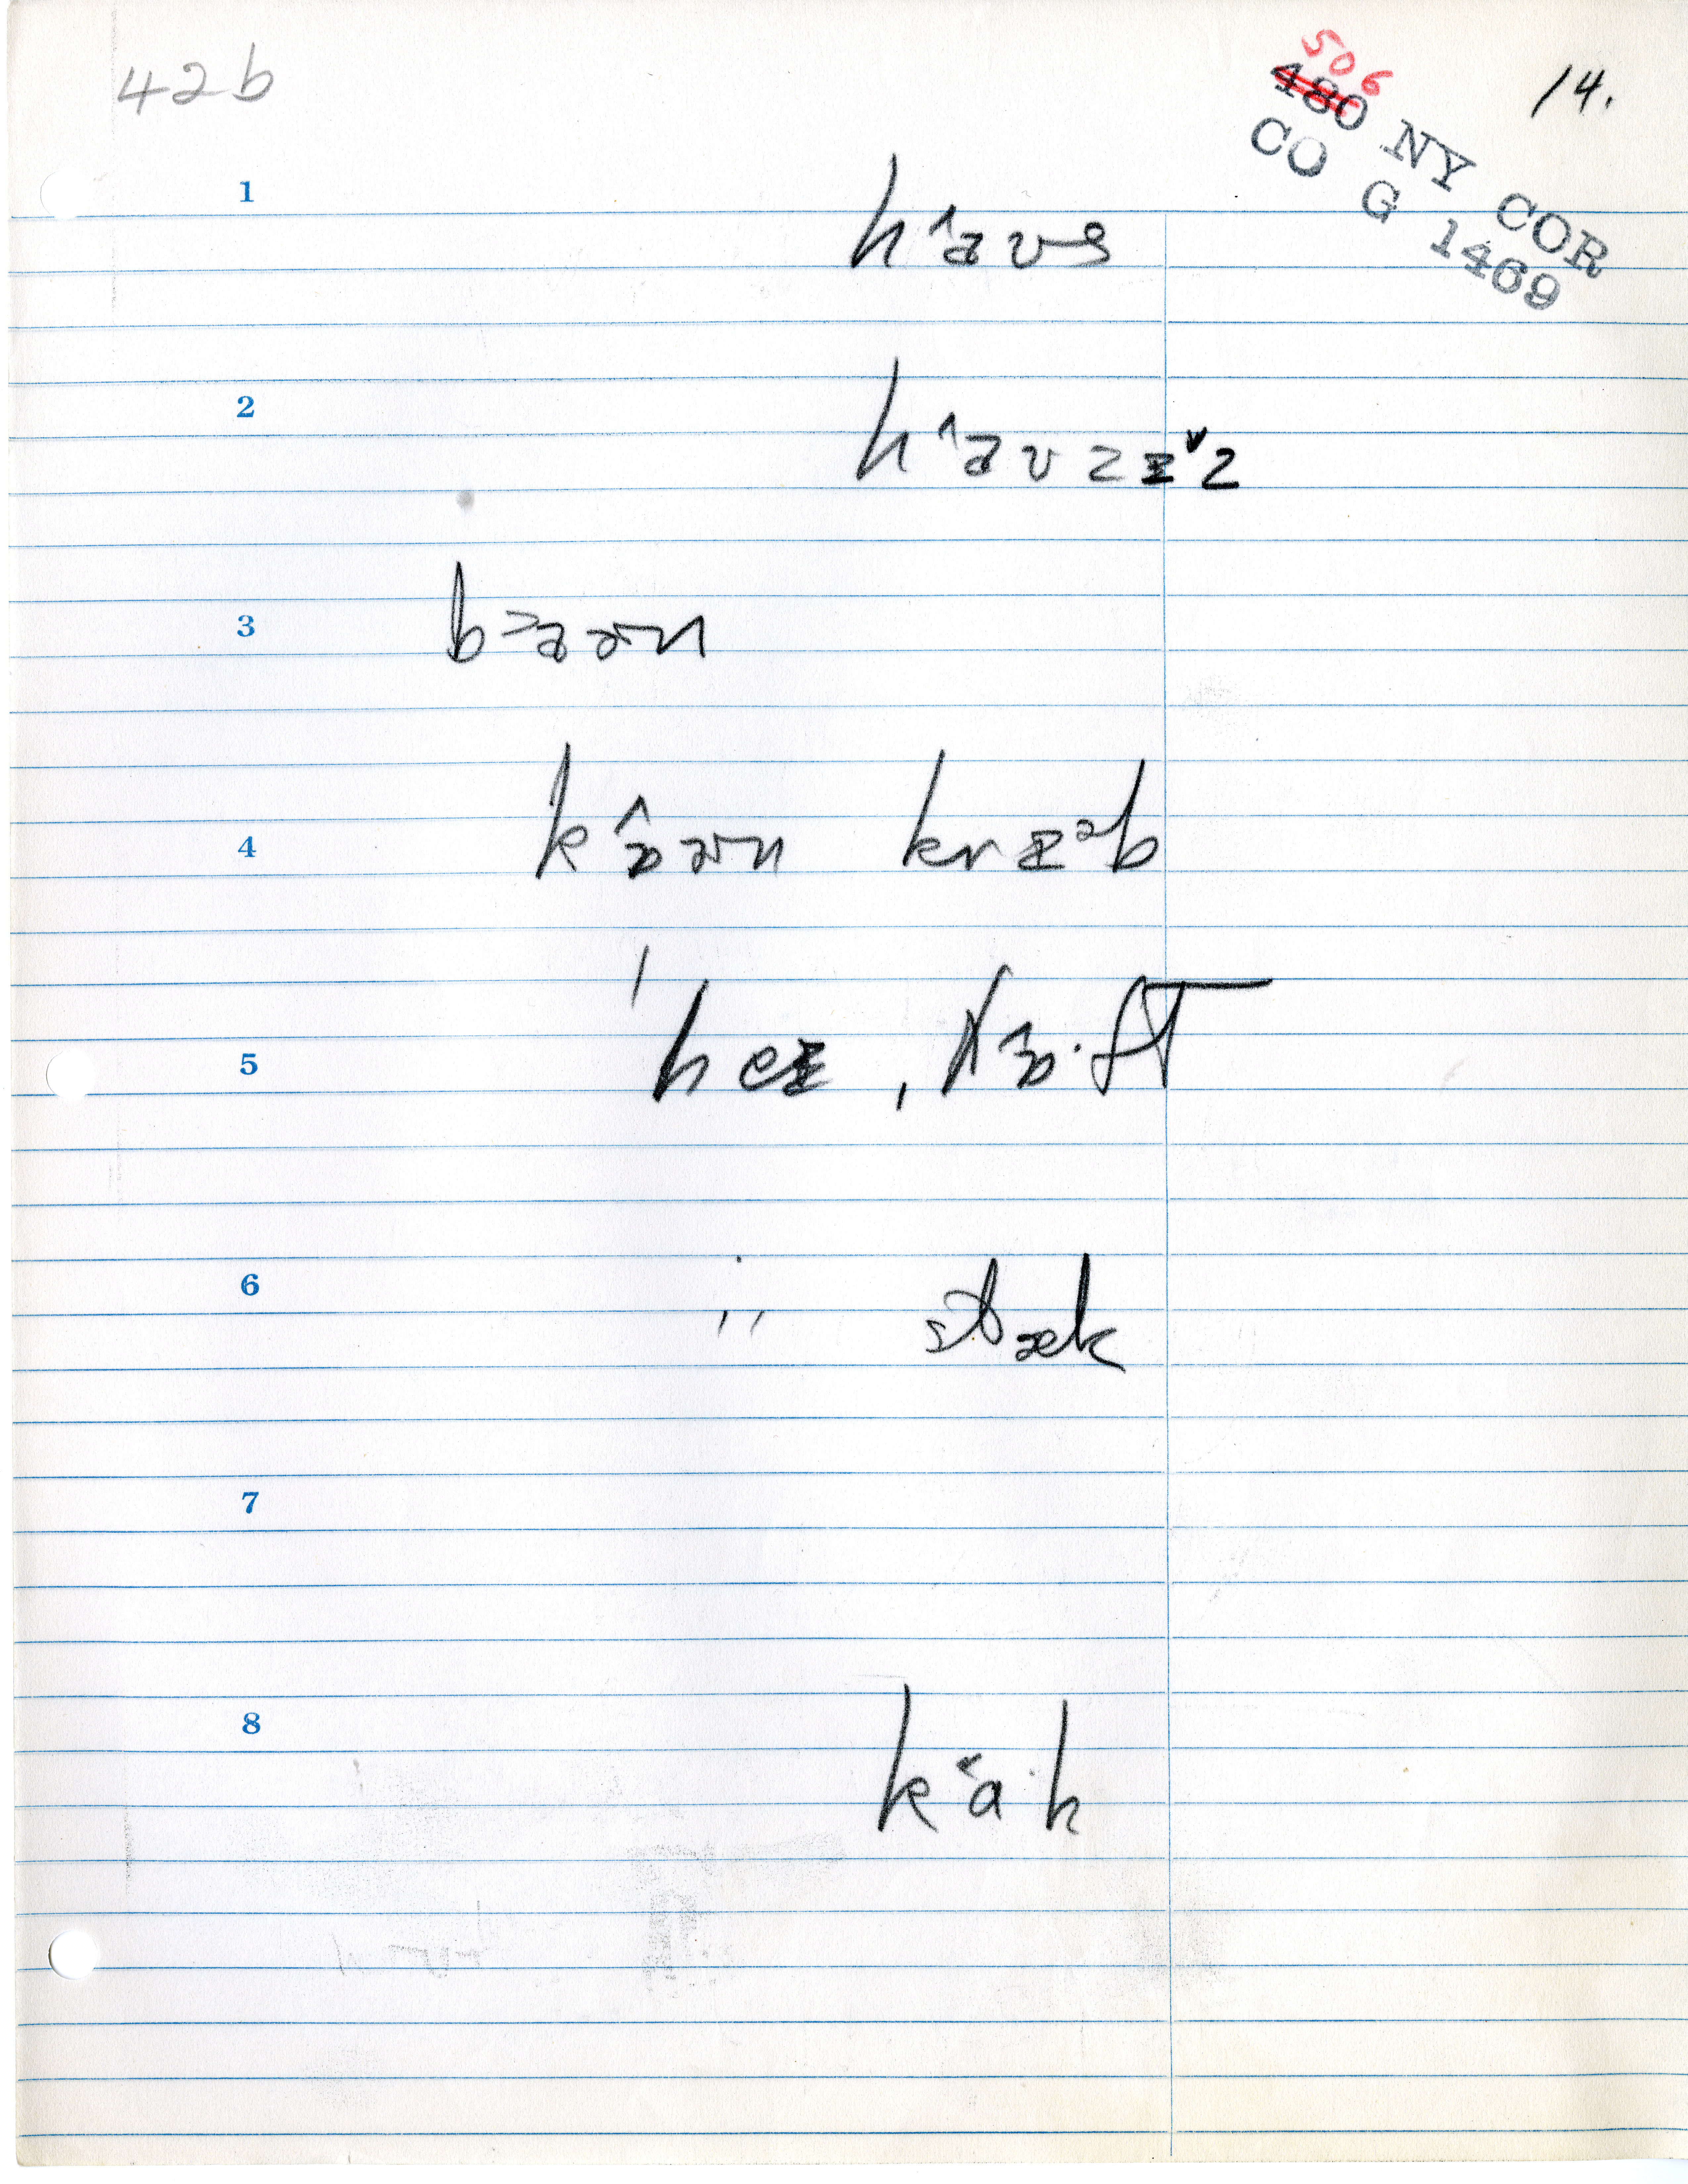 42b
506
480 NY COR
CO G 1469
14.
1
h^aʊs
2
h^aʊzɪˇz
3
b˃aɚn
4
k^ɒɚn krɪᵊb
5
ˈheɪ ˌl^ɒ·ft
6
ˈˈ stæk
7
8
k˂a·h